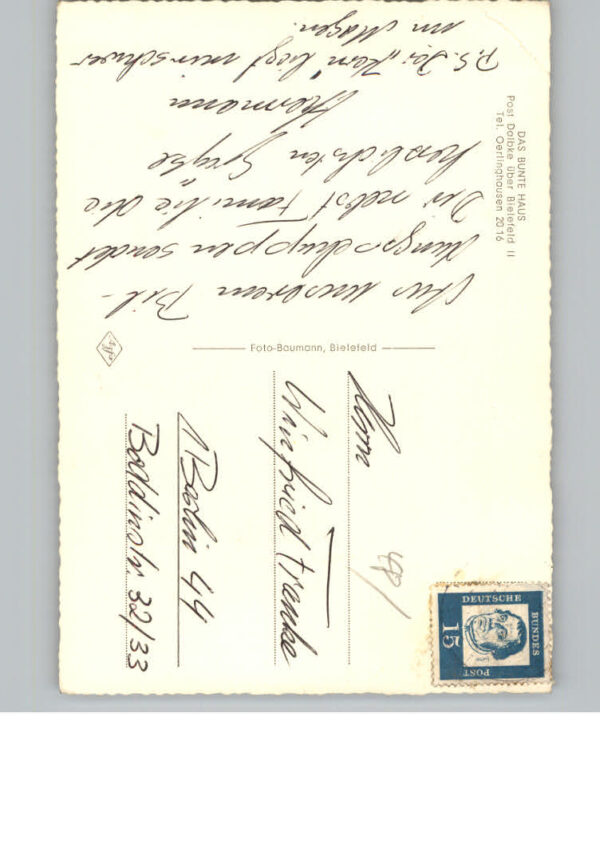 DAS BUNTE HAUS
Post Dalbke über Bielefeld II
Tel. Oerlinghausen 2016
Aus unserem Bil-
dungsschuppen sendet
Dir nebst Familie die
herzlichsten Grüße
Hermann
P.S. Der „Korn" liegt mir schwer
im Magen.
Foto-Baumann, Bielefeld
Herrn
Winfried Franke
1 Berlin 44
Boddinstr. 32/33
DEUTSCHE
BUNDES
POST
15